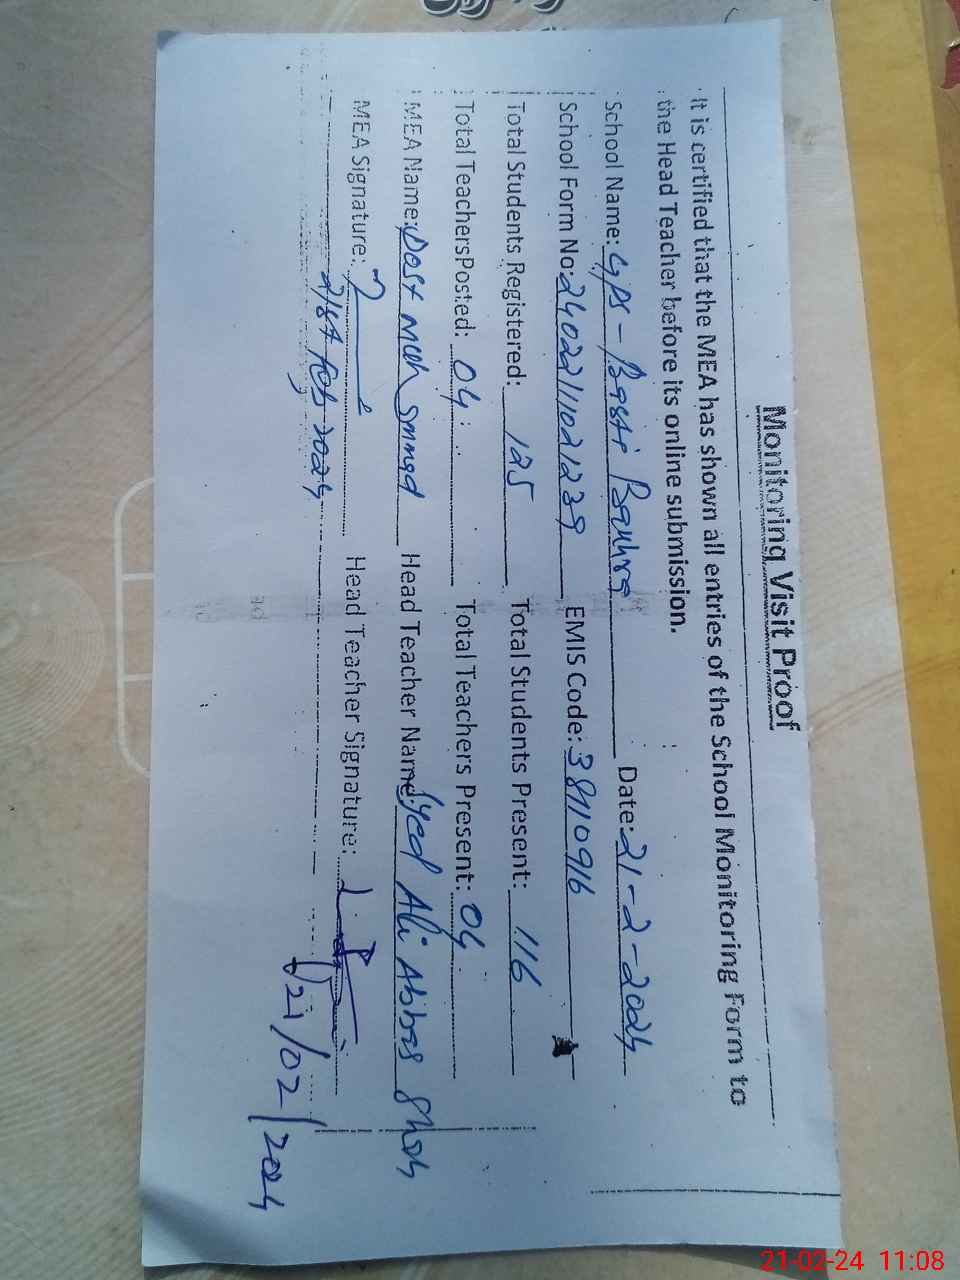 Monitoring Visit Proof
It is certified that the MEA has shown all entries of the School Monitoring Form to
the Head Teacher before its online submission.
School Name: GPS - Basti Date: 21-2-2024
School Form No: 24022111021239 EMIS Code: 38110916
Total Students Registered: 125 Total Students Present: 116
Total TeachersPosted: 04 Total Teachers Present: 04
MEA Name: Dost Head Teacher Name: Syed Ali Abbas Shah
MEA Signature: Head Teacher Signature:
21st feb 2024
21/02/2024
21-02-24 11:08